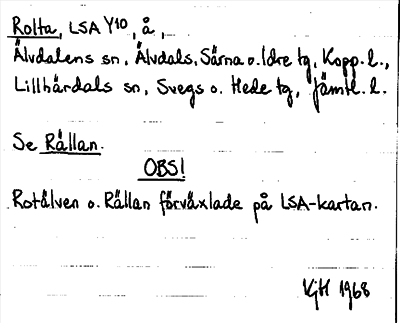 Rolta, LSA Y10, å,
Älvdalens sn, Älvdals, Särna o. Idre tg, Kopp. l.,
Lillhärdals sn, Svegs o. Hede tg, Jämtl. l.
Se Rållan.
OBS!
Rotälven o. Rällan förväxlade på LSA-kartan.
KjH 1968